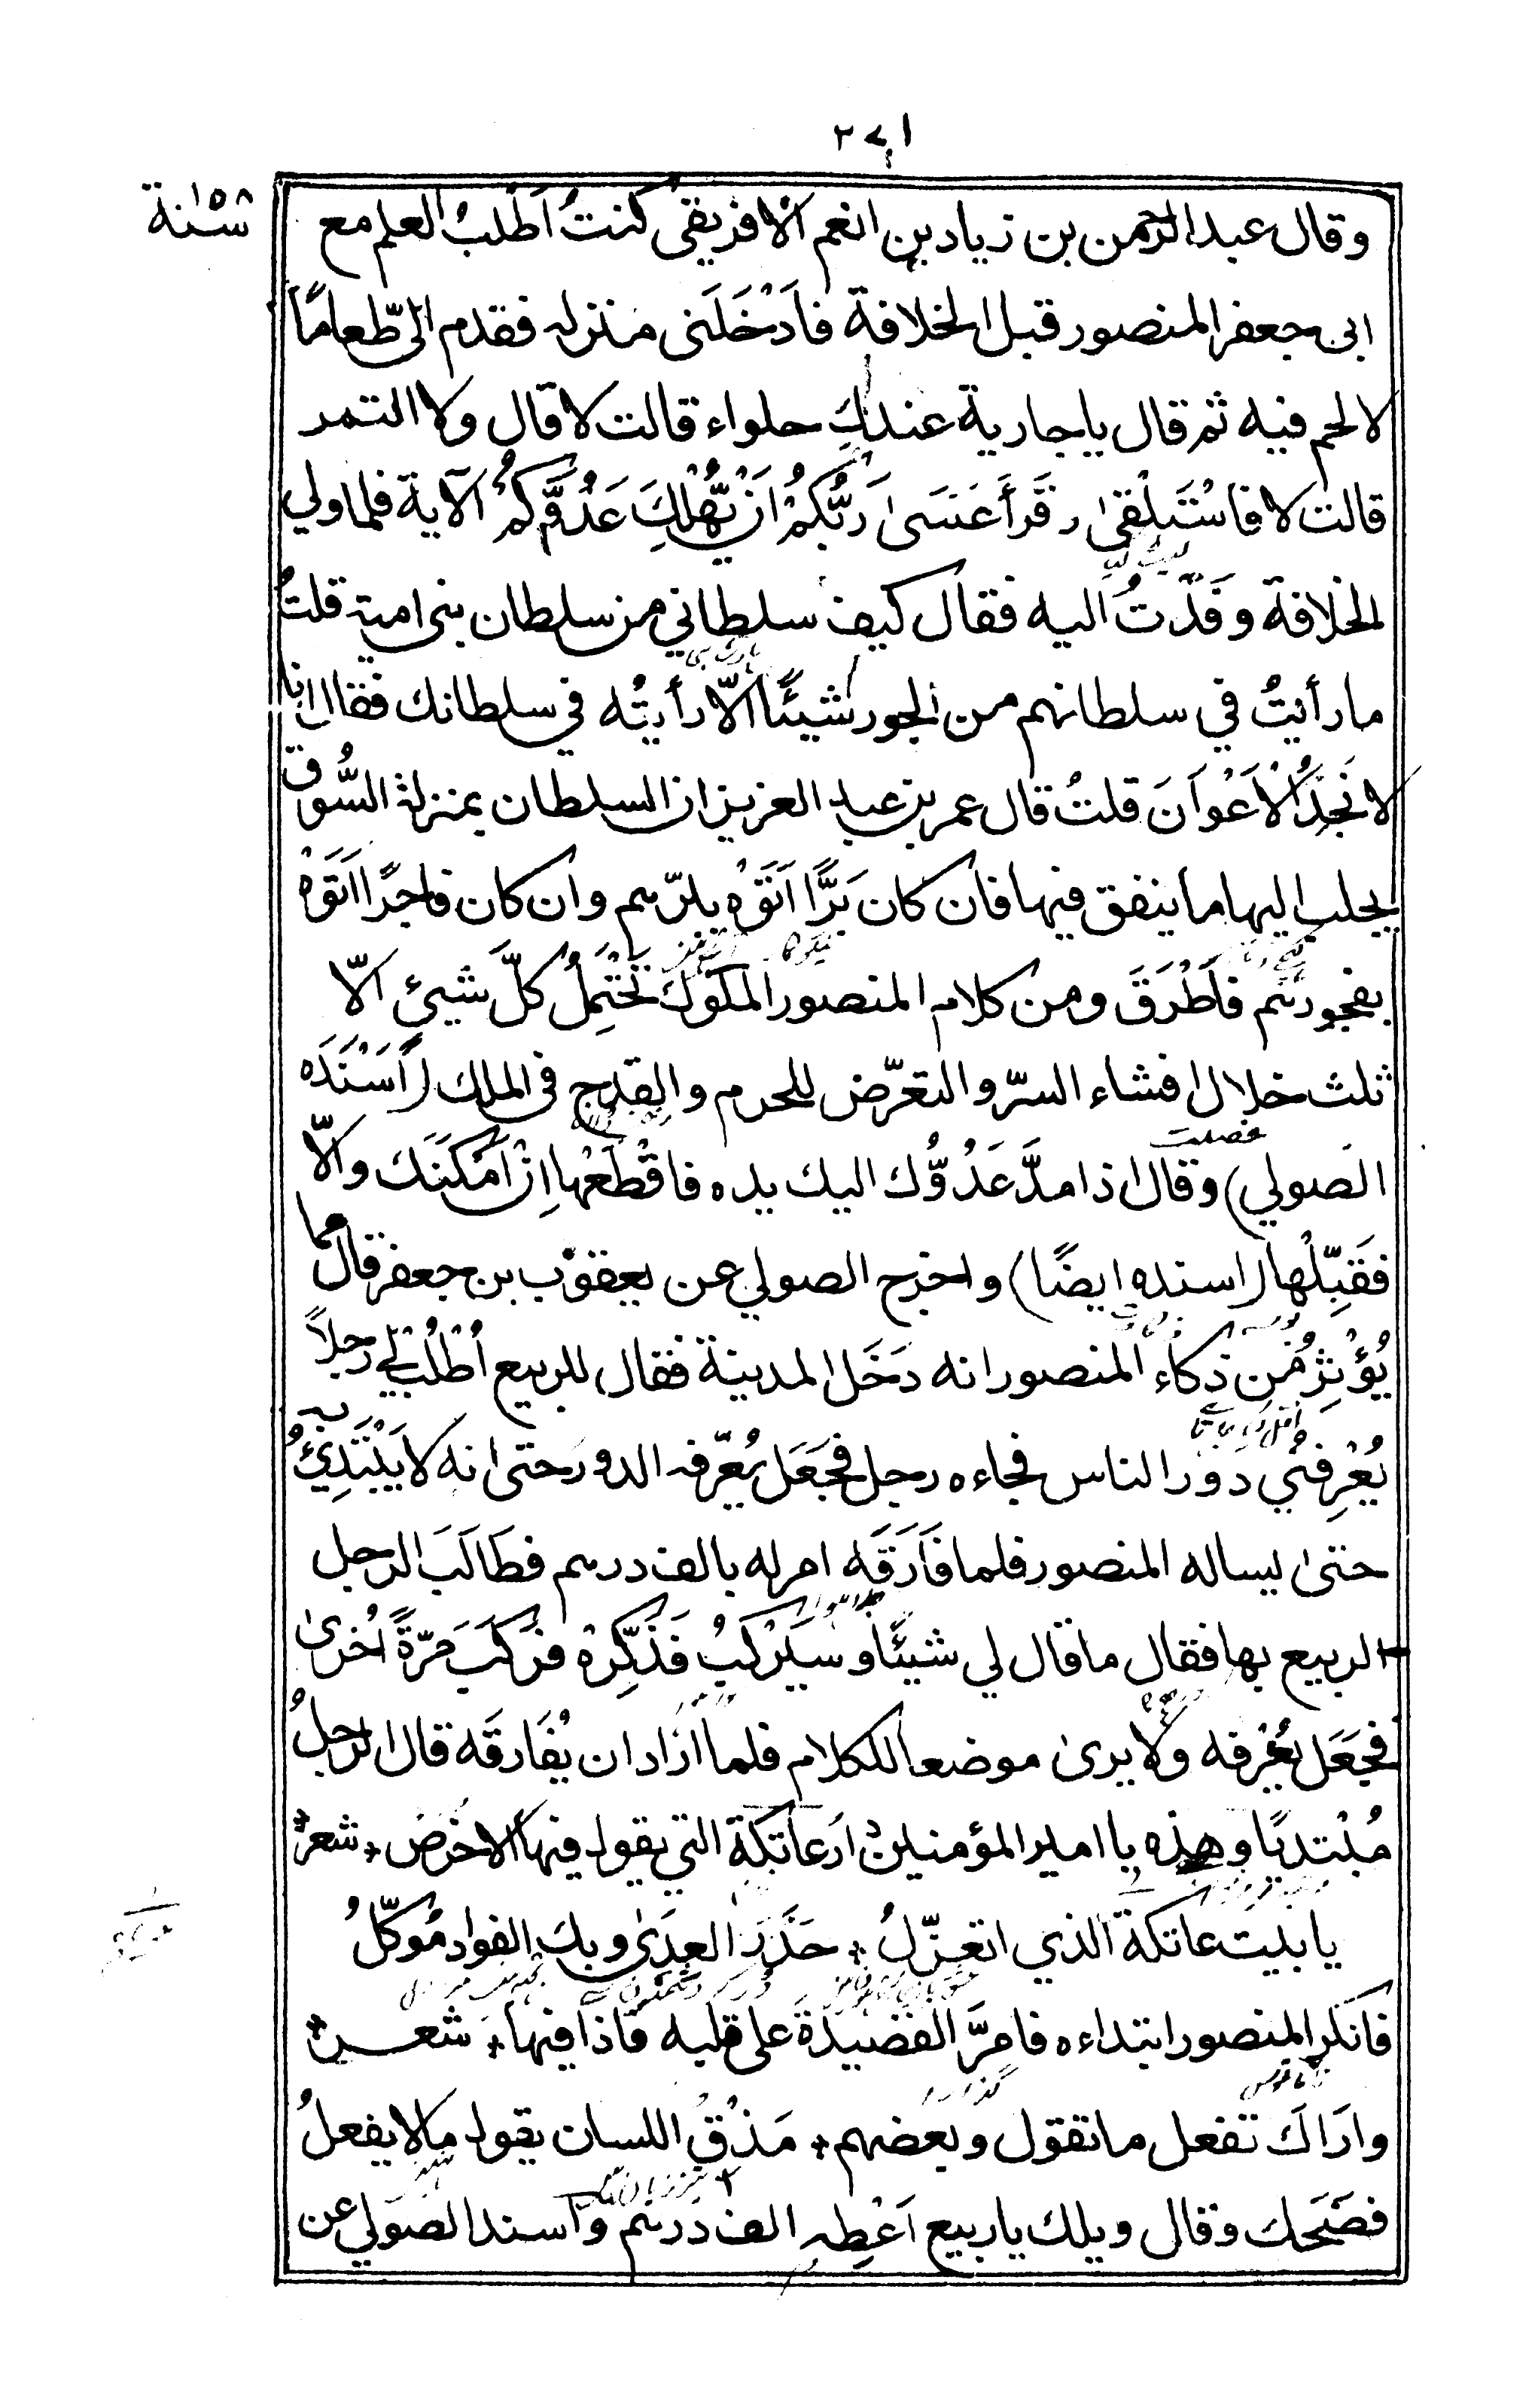 ٢٧١
سنة ١٥٨
وقال عبد الرحمن بن زياد بن انعم الافريقي كنتُ اَطْلبُ العلم مع
ابى جعفر المنصور قبل الخلافة فاَدْخَلَنى منزله فقدم الىّ طعامًا
لا لحم فيه ثم قال يا جارية عندكِ حلواء قالت لا قال ولا التمر
قالت لا فاسْتَلْقىٰ وقَرَأَ عَسَىٰ رَبُّكُمْ اَنْ يُّهْلِكَ عَدُوَّكُمْ الآية فلما ولي
الخلافة وفَدْتُ اليه فقال كيف سلطاني من سلطان بنى امية قلتُ
ما رأيتُ في سلطانهم من الجور شيئًا اِلّا رأيتُه في سلطانك فقال انا
لا نَجِدُ الْاَعْوَانَ قلتُ قال عمر بن عبد العزيز ان السلطان بمنزلة السُّوق
يجلب اليها ما ينفق فيها فان كان بَرًّا اَتَوْهُ ببرّهم وان كان فاجرًا اَتَوْهُ
بفجورهم فاَطْرَقَ ومن كلام المنصور الملوك تَحْتَمِلُ كلَّ شيئٍ الّا
ثلث خلال افشاء السرّ والتعرّض للحرم والقدح فى الملك (اَسْنَدَه
الصولي) وقال اذا مدَّ عَدُوُّك اليك يده فاقْطَعْها اِنْ اَمْكَنَكَ والّا
فقَبِّلْها (اسنده ايضًا) واخرج الصولي عن يعقوب بن جعفر قال مما
يُؤْثَرُ مِن ذكاء المنصور انه دَخَلَ المدينة فقال للربيع اُطْلُبْ لي رجلاً
يُعْرِفني دور الناس فجاءه رجل فجَعَلَ يُعَرّفه الدور حتى انه لا يَبْتَدِئُ به
حتىٰ يساله المنصور فلما فَارَقَه امر له بالف درهم فطَالَبَ الرجل
الربيع بها فقال ما قال لي شيئًا وسَيَرْكَبُ فَذَكِّرْهُ فرَكِبَ مَرّةً اُخرىٰ
فجَعَلَ يُعَرّفه ولا يرىٰ موضعا للكلام فلما اراد ان يُفَارقَه قال الرجلُ
مُبْتديًا وهذه يا امير المؤمنين دَار عاتكة التي يقول فيها الاحوص ٭ شعر ٭
يا بيت عاتكة الذي اتعزّلُ ٭ حَذَرَ العِدَىٰ وبك الفواد مُوكّلُ
فانكر المنصور ابتداءه فامرَّ القصيدةَ على قلبه فاذا فيها ٭ شعر ٭
واَرَاكَ تفعل ما تقول وبعضهم ٭ مَذْقُ اللسان يقول ما لا يفعلُ
فضَحَك وقال ويلك يا ربيع اَعْطِه الف درهم واسند الصولي عن